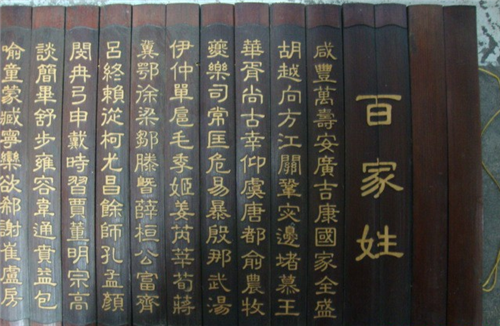 百家姓
咸豐萬壽安廣吉康國家全盛
胡越向方江關鞏邊堵慕王
華胥尚古幸仰虞唐都俞農牧
夔樂司常匡危易暴殷那武湯
伊仲單扈毛季姬姜芮莘荀蔣
冀鄂徐梁鄒滕暨薛桓公富齊
呂終賴從柯尤昌餘師孔孟顏
閔冉弓申戴時習賈董明宗高
談簡畢舒步雍容韋通貫益包
喻童蒙臧寧欒欲郗謝崔盧房